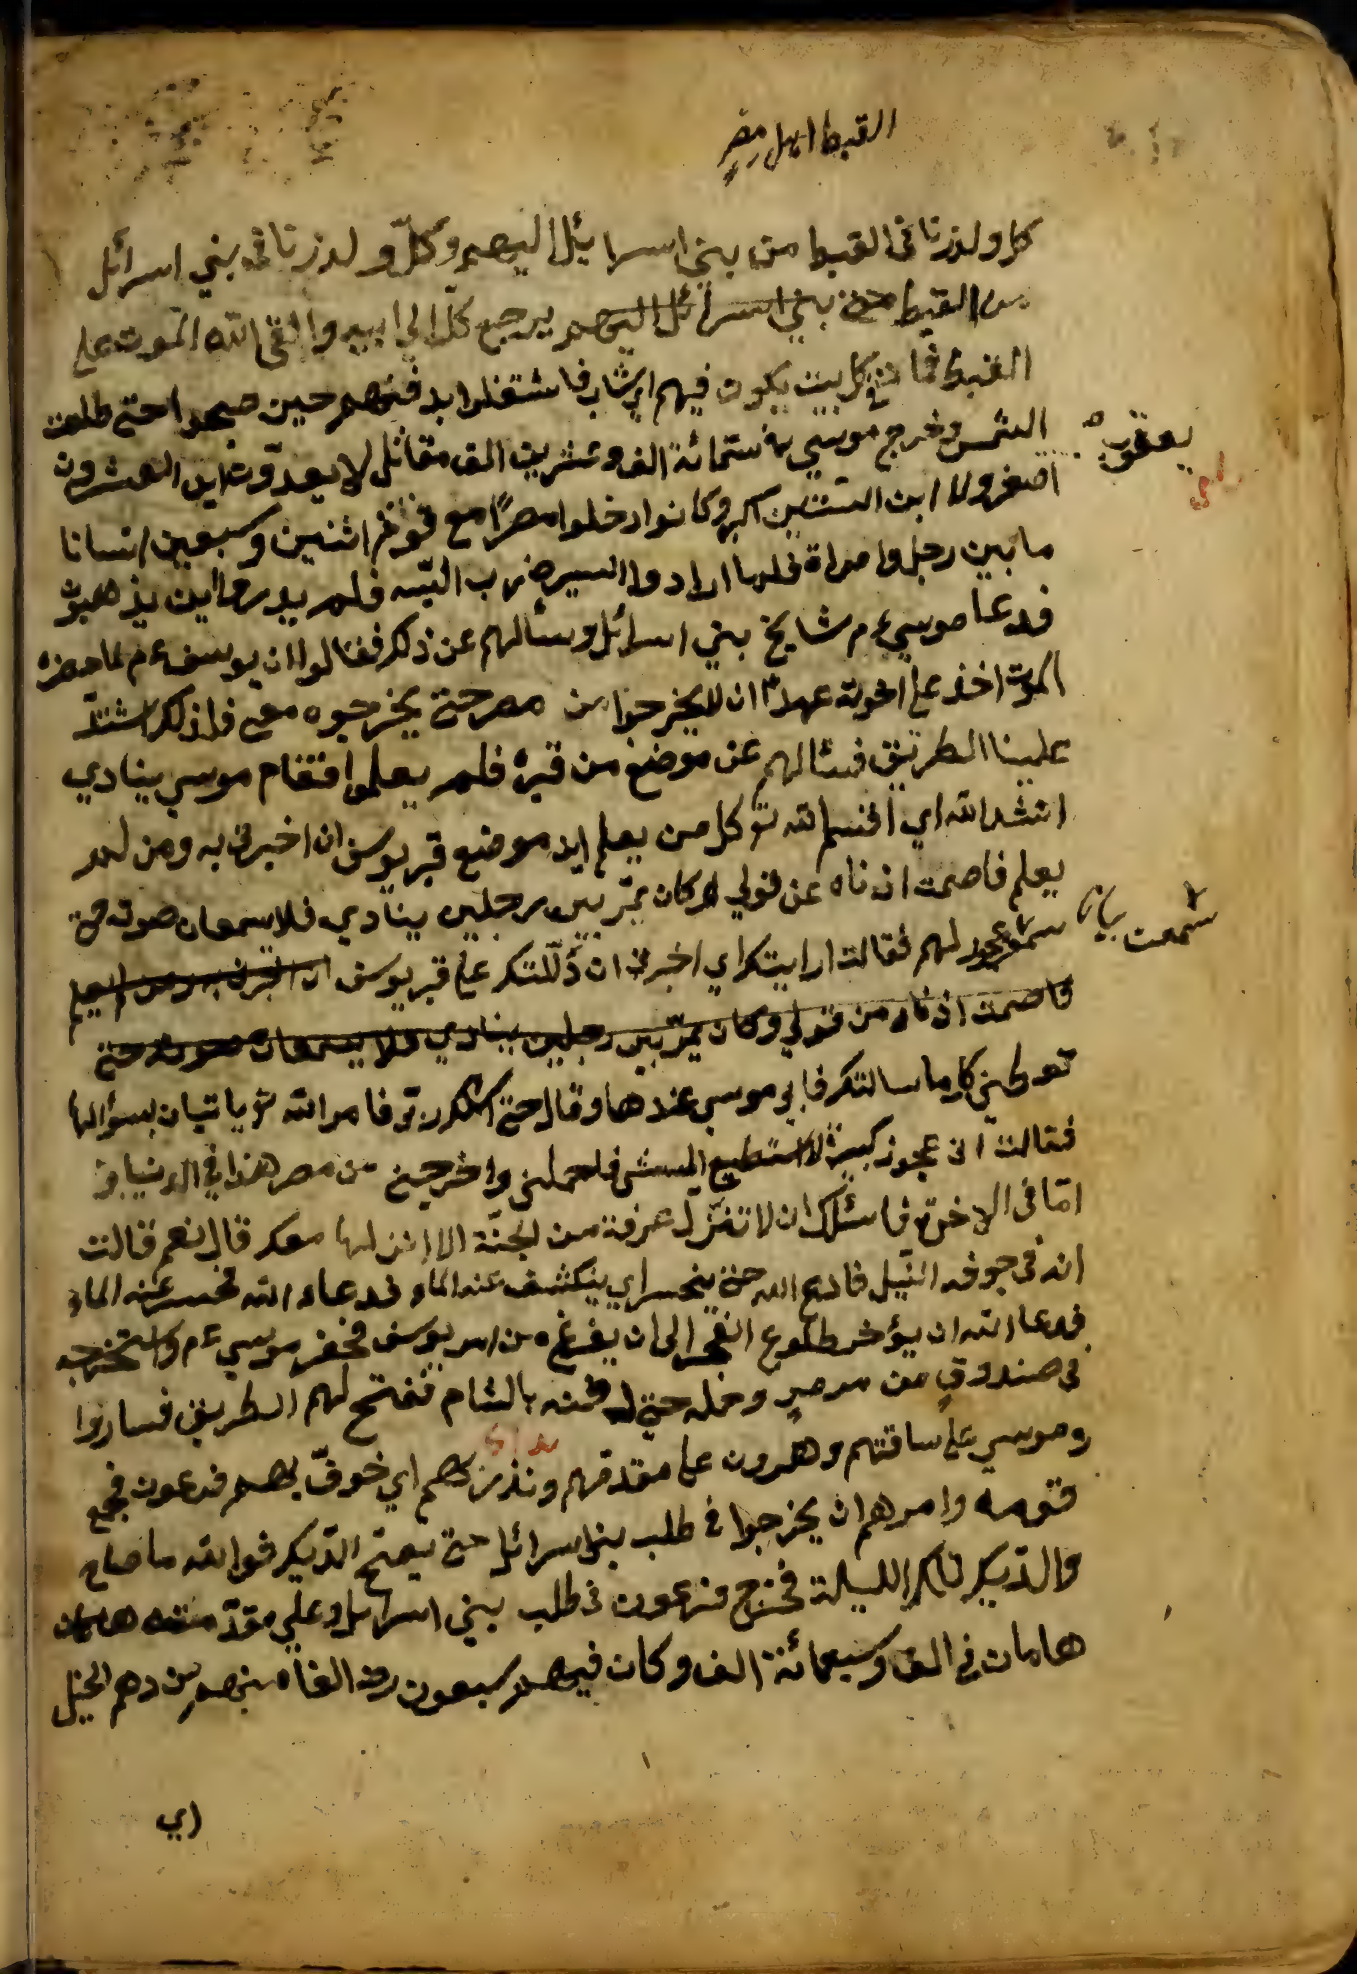 القبط اهل مصر
كل ولد زنا في القبط من بني اسرائيل اليهم وكل ولد زنا في بني اسرائل
من القبط من بني اسرائل اليهم يرجع كل الي ابيه والقي الله الموت علي
القبط فمات في كل بيت يكون فيهم اي شاب فاشتغلوا بدفنهم حين صبحوا حتي طلعت
الشمس وخرج موسي في ستمائة الف وعشرين الف مقاتل لا يعدّون ابن العشرون
يعقوب
اصغر ولا ابن الستين اكبر وكانوا دخلوا مصرًا مع اثنين وسبعين انسانا
ما بين رجل وامراة فلما ارادوا السير ضرب التيه فلم يدروا اين يذهبون
فدعا موسي ءم مشايخ بني اسرائل وسألهم عن ذلك فقالوا ان يوسف ءم لما حضره
الموت اخذ علي اخوته عهدًا ان لا يخرجوا من مصر حتي يخرجوه مع فلذلك اشتدّ
علينا الطريق فسئالهم عن موضع من قبره فلم يعلموا فقام موسي ينادي
انشد الله اي اقسم الله تع كل من يعلم اين موضع قبر يوسف ان اخبرني به ومن لم
يعلم فاصمت اذناه عن قولي وكان يمرّ بين رجلين ينادي فلا يسمعان صوته حتي
سمعت
عجوز لهم فقالت ارايتك اي اخبرني ان دللتك علي قبر يوسف
فاصمت اذناه من قولي وكان يمرّ بين رجلين ينادي فلا يسمعان صوته حتي
تعطيني كل ما سالتك فابي موسي عندها وقال حتي ربي فامر الله تع باتيان بسؤالها
فقالت اني عجوز كبيرة لا استطيع المشي فاحملني واخرجني من مصر هذا في الدنيا و
امّا في الاخرة فاسئلك ان لا تنزّل غرفة من الجنّة الا انزلها معك قال نعم قالت
انه في جوف النّيل فادع الله حتي ينحسر اي ينكشف عنه الماء فدعا الله فحسر عنه الماء
فدعا الله ان يؤخر طلوع الفجر الي ان يفرغ من امر يوسف فحفر موسي ءم واستخرجه
في صندوقٍ من مرمر وحمله حتي دفنه بالشام ففتح لهم الطريق فساروا
وموسي علي ساقتهم وهرون علي مقدمتهم ونذر بهم اي خوفّ بهم فرعون فجمع
قومه وامرهم ان يخرجوا في طلب بني اسرائل حتي يصيح الدّيك فوالله ما صاح
والدّيك تلك الليلة فخرج فرعون في طلب بني اسرائل وعلي مقدّمته هامان
هامان في الف وسبعمائة الف وكان فيهم سبعون الفا منهم من دهم الخيل
اي